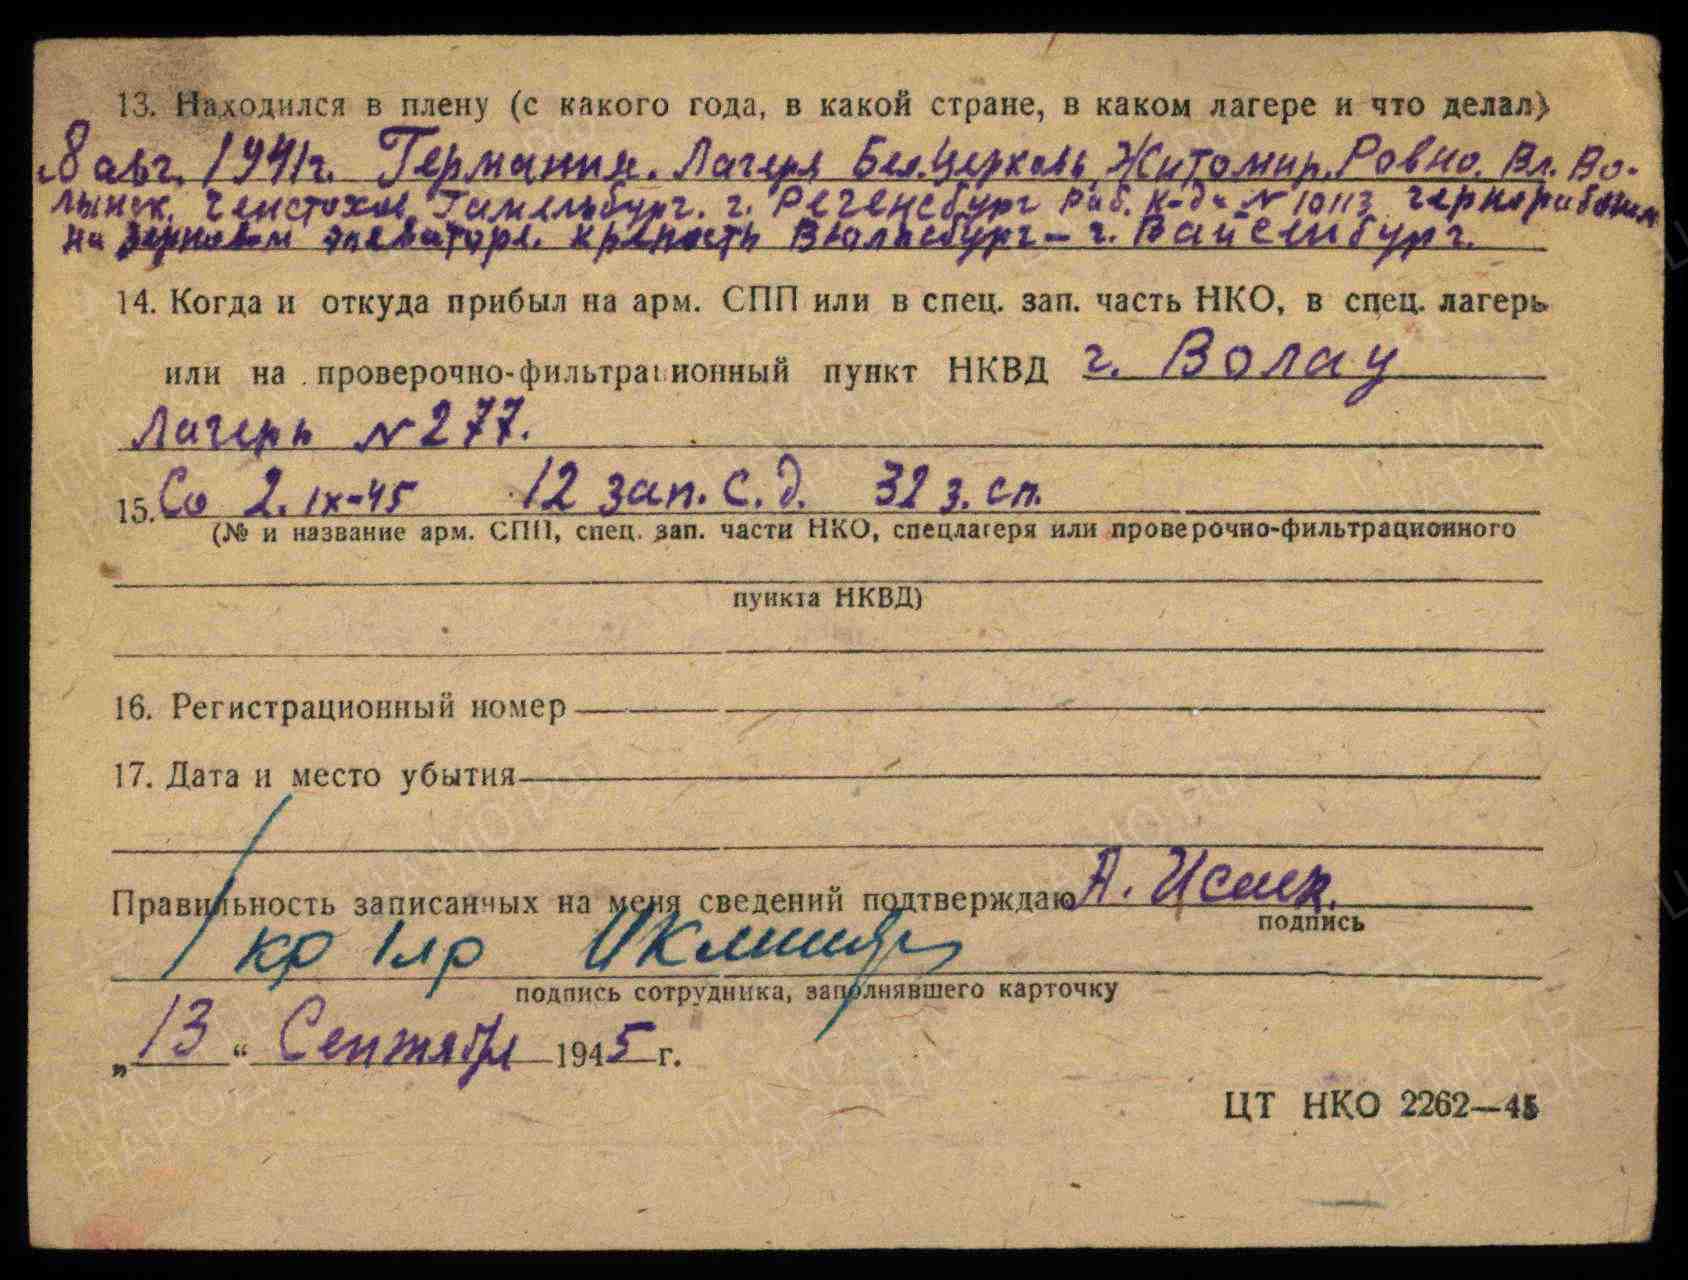 13. Находился в плену (с какого года, в какой стране, в каком лагере и что делал)
8 авг. 1941г. Германия. Лагеря Бел.Церковь, Житомир, Ровно. Вл. Во-
лынск. Ченстохов, Гамельбург. г. Регенсбург Раб. К-да № 10113 чернорабочим
на зерновом элеваторе. крепость Вюльсбург – г. Вайсенбург.
14. Когда и откуда прибыл на арм. СПП или в спец. зап. часть НКО, в спец. лагерь
или на проверочно-фильтрационный пункт НКВД г. Волау
Лагерь № 277.
15. Со 2. IX-45 12 зап. с. д. 32 з. сп.
(№ и название арм. СПП, спец. зап. части НКО, спецлагеря или проверочно-фильтрационного
пункта НКВД)
16. Регистрационный номер
17. Дата и место убытия
Правильность записанных на меня сведений подтверждаю А.
подпись
кр
подпись сотрудника, заполнявшего карточку
„13“ Сентября 1945 г.
ЦТ НКО 2262—45